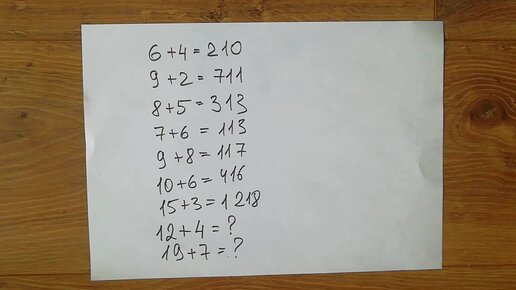 6+4=210
9+2=711
8+5=313
7+6=113
9+8=117
10+6=416
15+3=1218
12+4=?
19+7=?